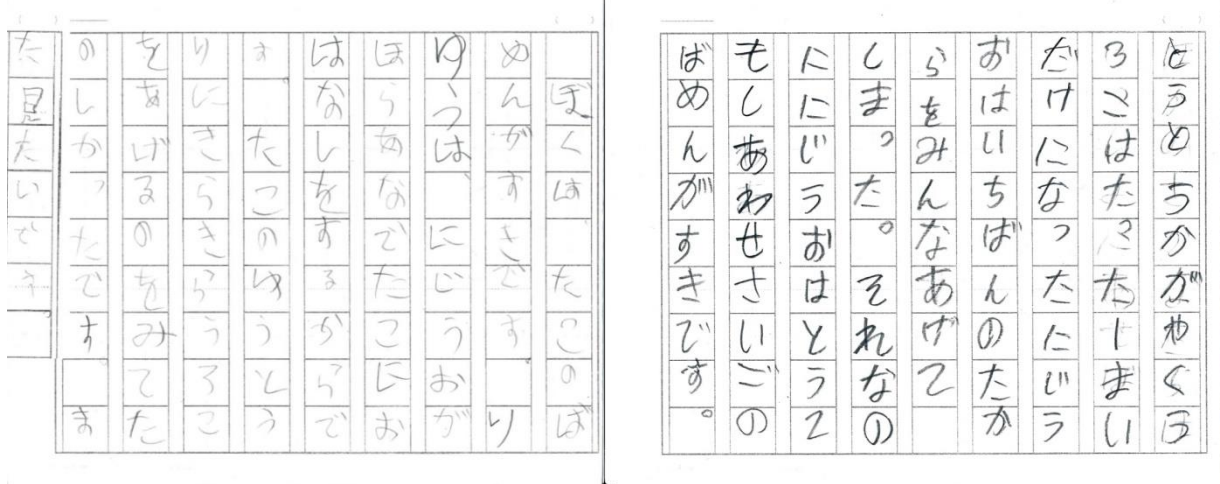 ぼくは、たこのば
めんがすきです。り
ゆうは、にじうおが
ほらあなでたこにお
はなしをするからで
す。たこのゆうとう
りにさらきらうろこ
をあげるのをみてた
のしかったです。ま
た見たいです。
とうとうかがやくう
ろこはたったーまい
だけになったにじう
おはいちばんのたか
らをみんなあげて
しまった。それなの
ににじうおはとうて
もしあわせさいごの
ばめんがすきです。